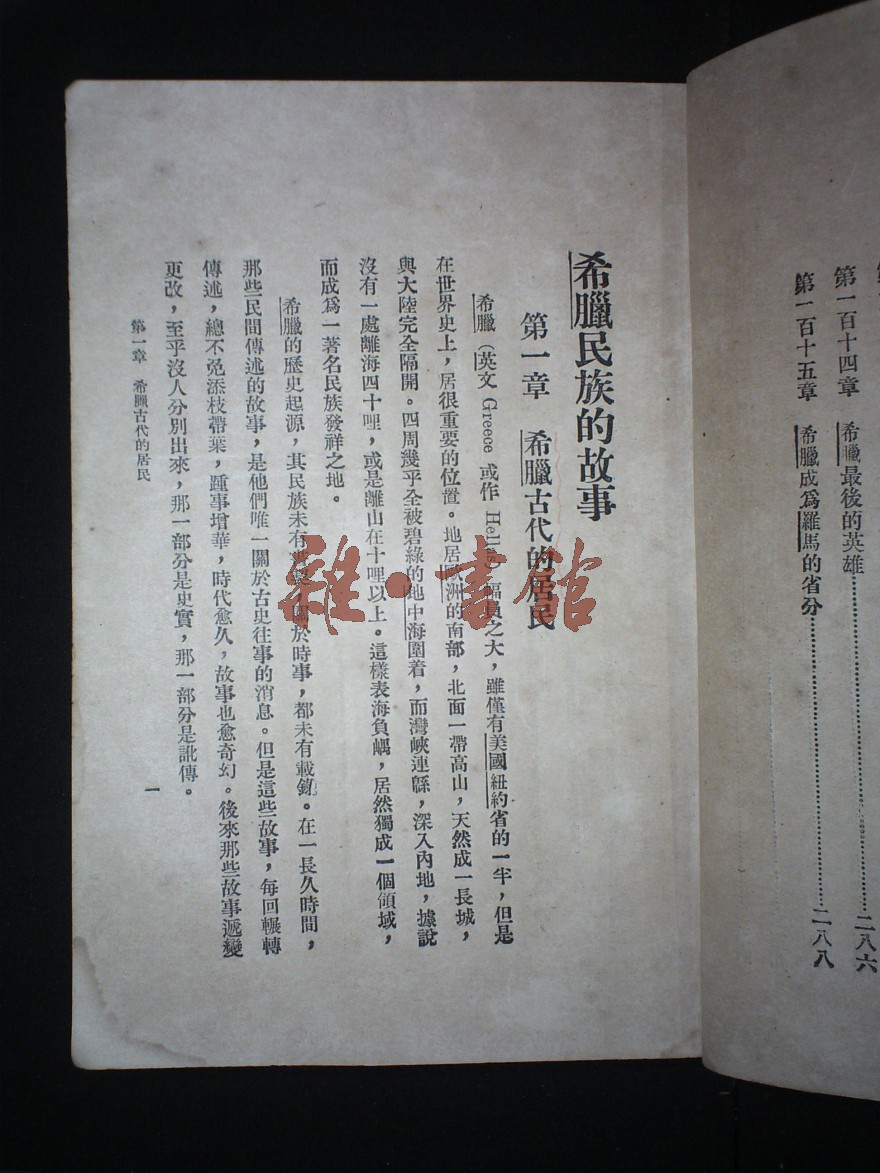 第一百十四章　希臘最後的英雄……二八六
第一百十五章　希臘成爲羅馬的省分……二八八
希臘民族的故事
第一章　希臘古代的居民
希臘（英文 Greece 或作 Hellas）幅員之大，雖僅有美國紐約省的一半，但是
在世界史上，居很重要的位置。地居歐洲的南部，北面一帶高山，天然成一長城，
與大陸完全隔開。四周幾乎全被碧綠的地中海圍着，而灣峽連緜，深入內地，據說
沒有一處離海四十哩，或是離山在十哩以上。這樣表海負嵎，居然獨成一個領域，
而成爲一著名民族發祥之地。
希臘的歷史起源，其民族未有，關於時事，都未有載錄。在一長久時間，
那些民間傳述的故事，是他們唯一關於古史往事的消息。但是這些故事，每回輾轉
傳述，總不免添枝帶葉，踵事增華，時代愈久，故事也愈奇幻。後來那些故事遞變
更改，至乎沒人分別出來，那一部分是史實，那一部分是訛傳。
第一章　希臘古代的居民
一
雜·書館